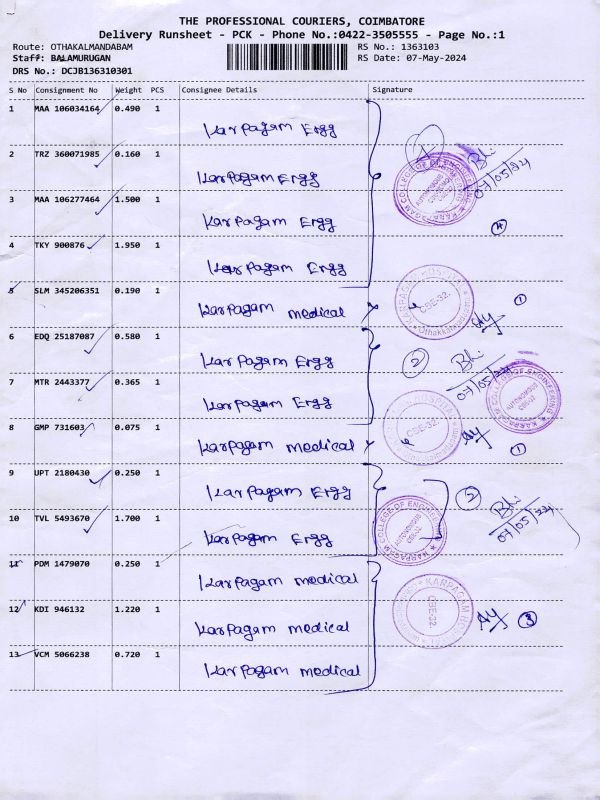 THE PROFESSIONAL COURIERS, COIMBATORE
Delivery Runsheet - PCK - Phone No.:0422-3505555 - Page No.:1
Route: OTHAKALMANDABAM RS No.: 1363103
Staff: BALAMURUGAN RS Date: 07-May-2024
DRS No.: DCJB136310301
S No Consignment No Weight PCS Consignee Details Signature
1 MAA 106034164 0.490 1
Karpagam Ergg
2 TRZ 360071985 0.160 1
Karpagam Ergg
07/05/24
3 MAA 106277464 1.500 1
Karpagam Ergg
4
4 TKY 900876 1.950 1
Karpagam Ergg
5 SLM 345206351 0.190 1
Karpagam medical
CBE-32.
1
6 EDQ 25187087 0.580 1
Karpagam Ergg
2
07/05/24
7 MTR 2443377 0.365 1
Karpagam Ergg
KARPAGAM COLLEGE OF ENGINEERING
AUTONOMOUS
8 GMP 731603 0.075 1
Karpagam medical
CBE-32.
1
9 UPT 2180430 0.250 1
Karpagam Ergg
2
07/05/24
10 TVL 5493670 1.700 1
Karpagam Ergg
KARPAGAM COLLEGE OF ENGINEERING
11 PDM 1479070 0.250 1
Karpagam medical
12 KDI 946132 1.220 1
Karpagam medical
CBE-32
3
13 VCM 5066238 0.720 1
Karpagam medical